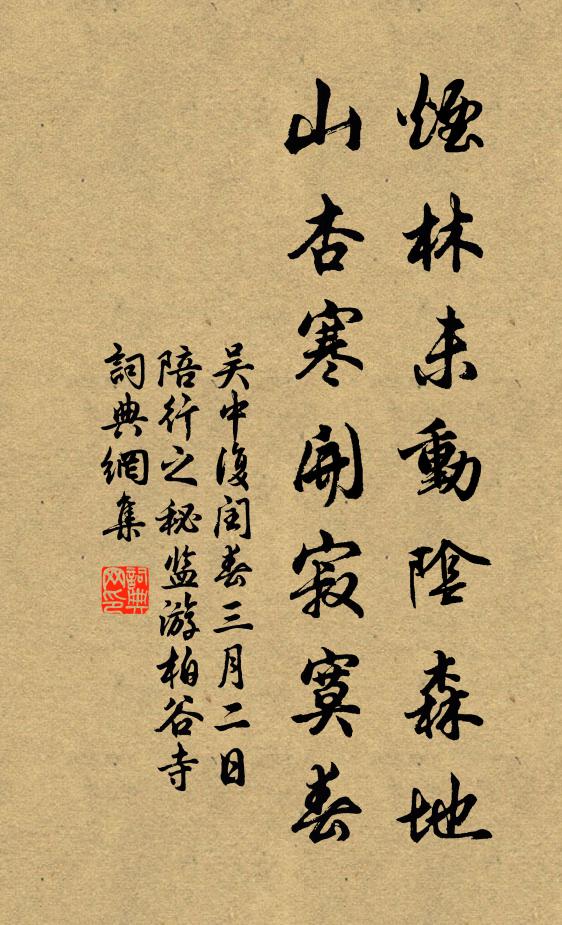 煙林未動陰森地
山杏寒開寂寞春
吴中復闰春三月二日
陪行之秘监游柏谷寺
詞典網集
詞典网印